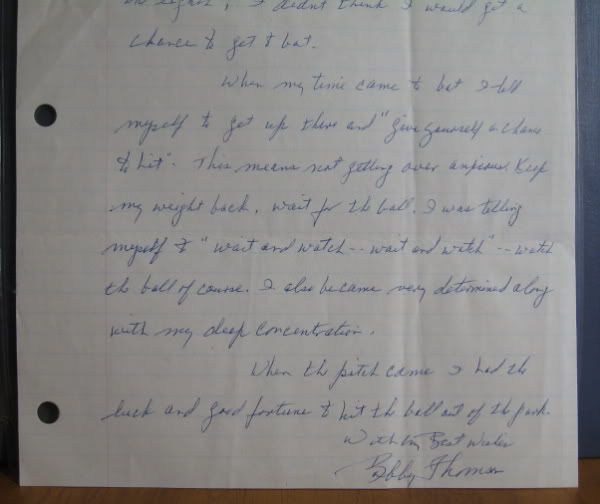 I didn't think I would get a
chance to get to bat.
When my time came to bat I tell
myself to get up there and "give yourself a chance
to hit". This means not getting over anxious. Keep
my weight back, wait for the ball. I was telling
myself to "wait and watch -- wait and watch" -- watch
the ball of course. I also became very determined along
with my deep concentration.
When the pitch came I had the
luck and good fortune to hit the ball out of the park.
With my Best Wishes
Bobby Thomson